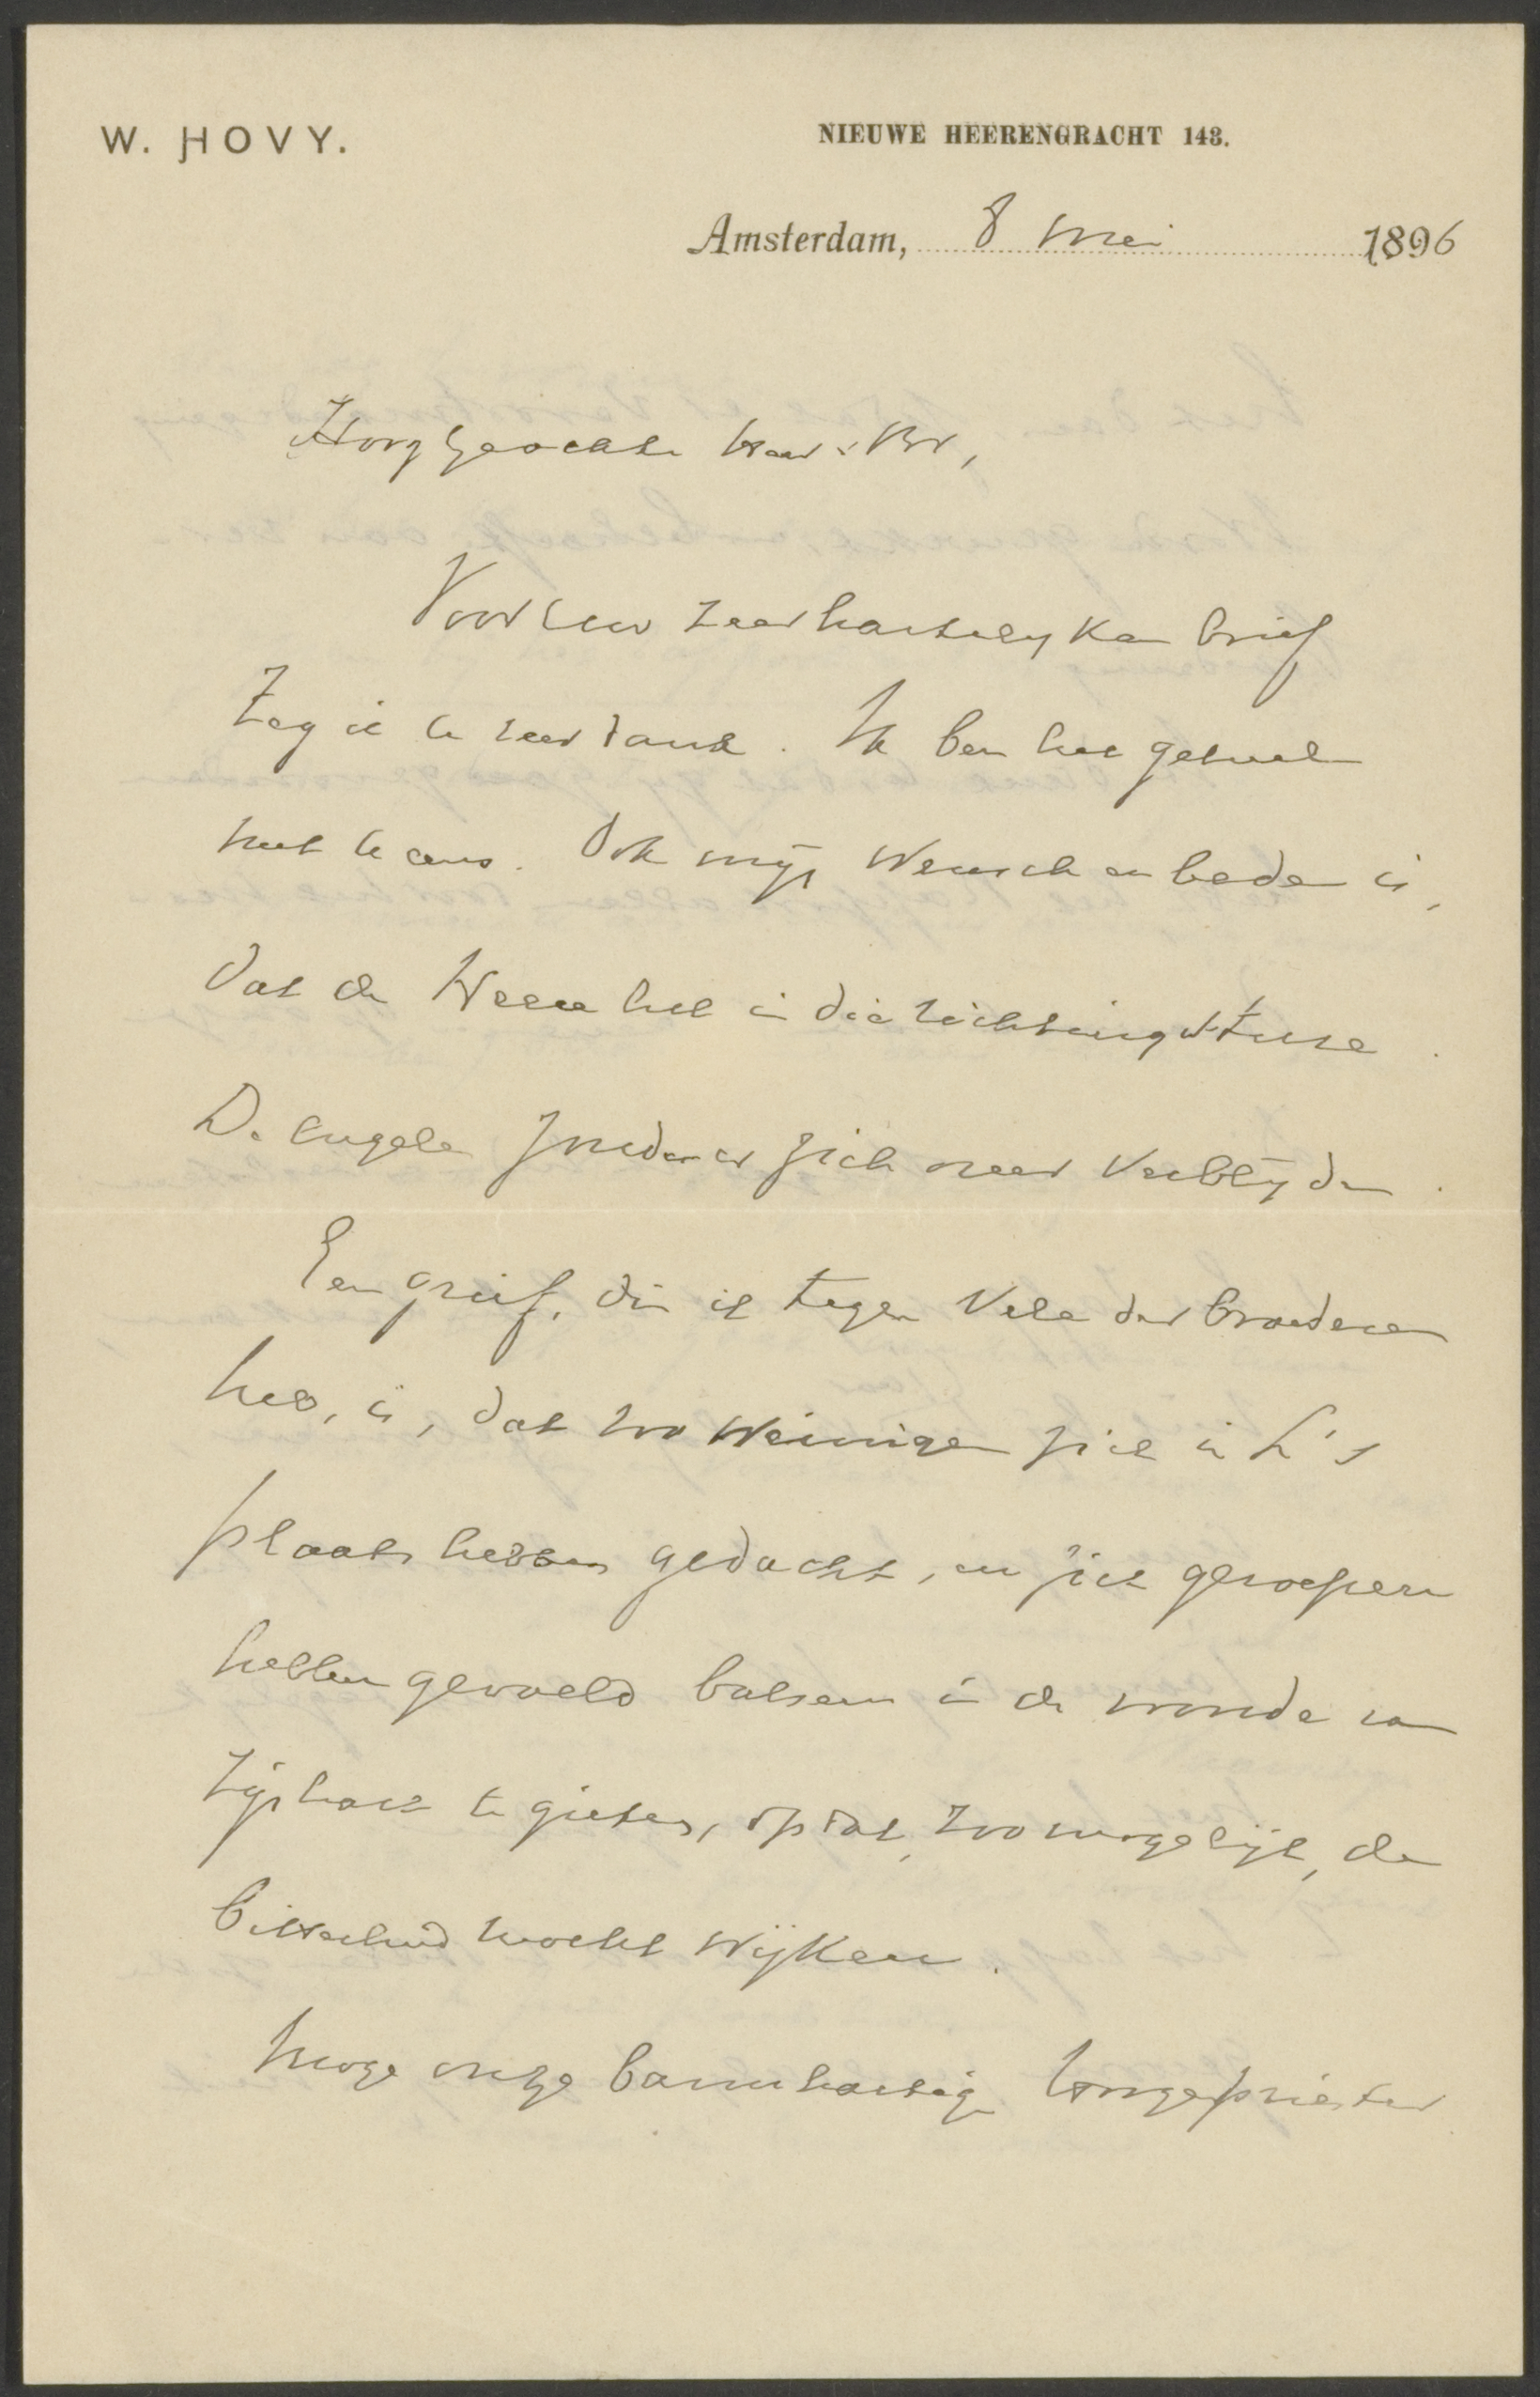 W. HOVY.
NIEUWE HEERENGRACHT 143.
Amsterdam, 8 Mei 1896
Hooggeachte Heer & Br,
Voor Uw zeer hartelyken brief
zeg ik U zeer dank. Ik ben het geheel
met U eens. Ook mijn wensch en bede is,
dat de Heere het in die richting sture.
De engelen zouden er zich over verblijden.
Een grief, die ik tegen vele der broederen
heb, is, dat zoo weinigen zich in L's
plaats hebben gedacht, en zich geroepen
hebben gevoeld balsem in de wonde van
zijn hart te gieten, opdat, zoo mogelijk, de
bitterheid mocht wijken.
Moge onze barmhartige Hoogepriester